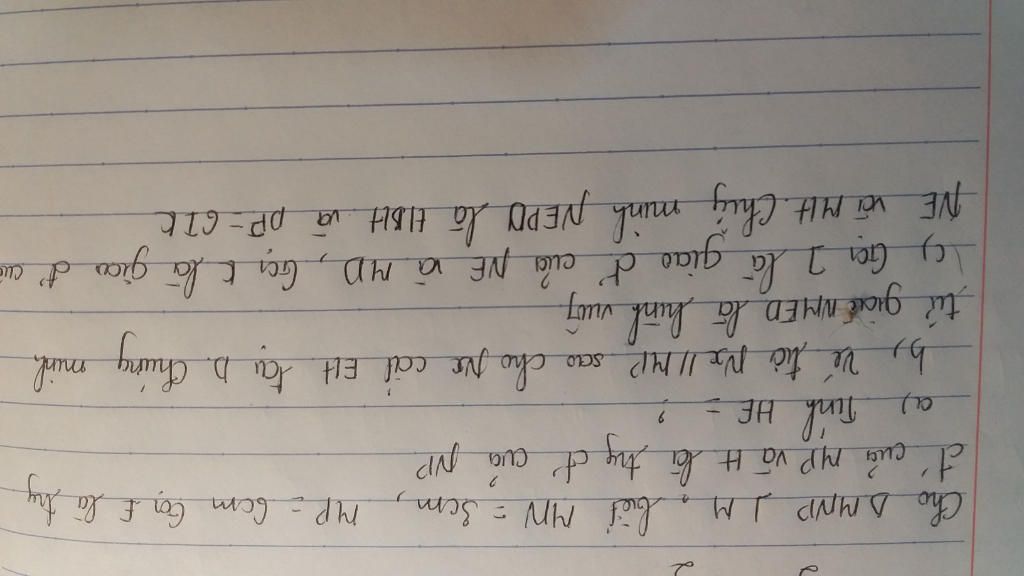 2 2
Cho Δ MNP ⊥ M. biết MN = 3cm, MP = 6cm Gọi E là trg
đ' của MP và H là trg đ' của NP
a, Tính HE = ?
b, Vẽ tia Nx // MP sao cho Nx cắt EH tại D. Chứng minh
tứ giác NMED là hình vuông
c, Gọi I là giao đ' của NE và MD, Gọi K là giao đ' của
NE và MH. Chứng minh NEPD là HBH và DP = 6IK